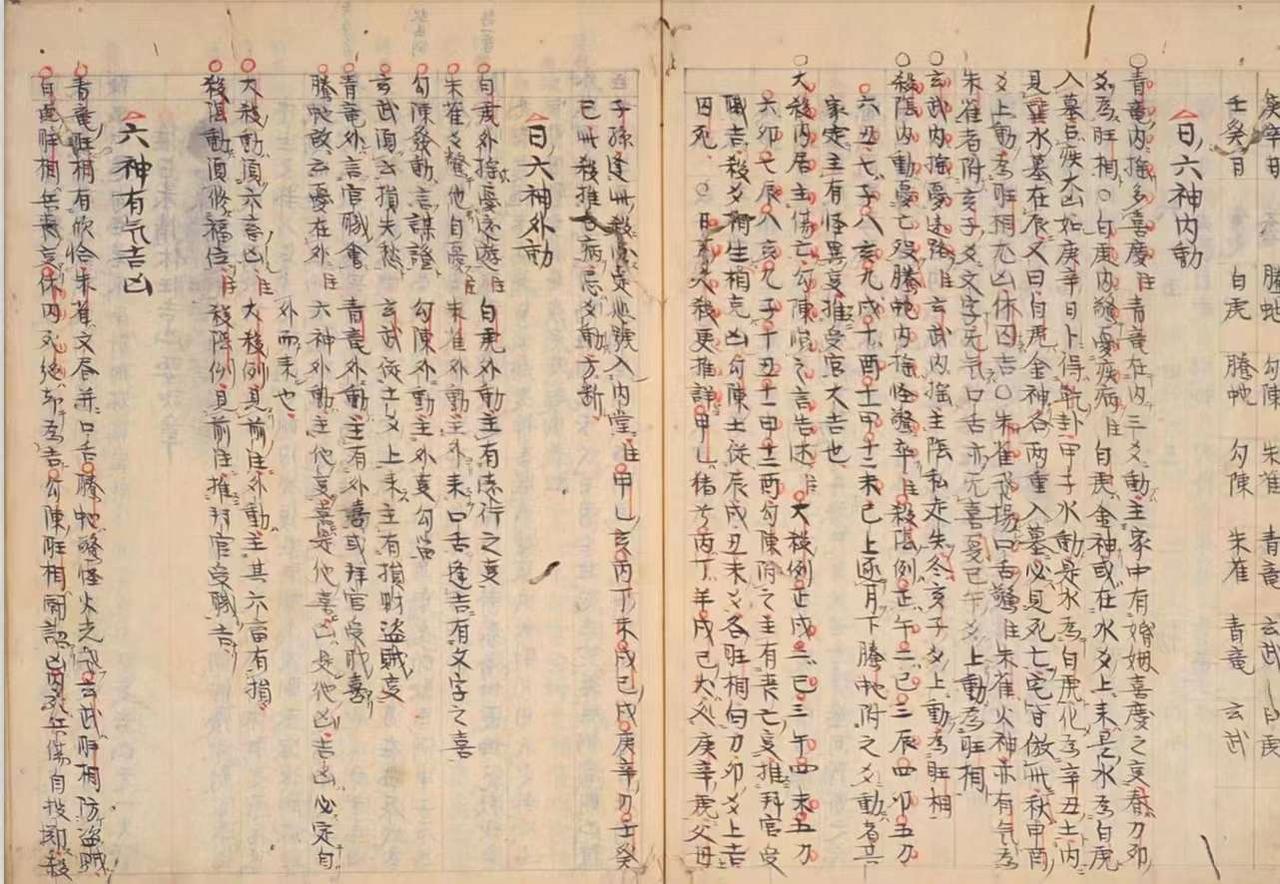 庚辛日 螣虵 勾陳 朱雀 青竜 玄武 白虎
壬癸日 白虎 螣虵 勾陳 朱雀 青竜 玄武
曰六神内動
○青竜内搖多喜慶 注 青竜在内三爻動主家中有婚姻喜慶之事春刀卯
爻為旺相○白虎内騒憂疾病注 白虎金神或在水爻上来是水為白虎
入墓忌疾大凶如庚辛日卜得乾卦甲子水動是水為白虎化為辛丑土内
見雙水墓在辰又曰白虎金神各内重入墓必見死亡宅皆倣此秋申酉
爻上動為旺相尤凶休囚吉○朱雀飛揚口舌驚注 朱雀火神亦有気為
朱雀者附亥子爻文字无気口舌亦无喜憂巳午爻上動為旺相
○玄武内搖憂逃 注 玄武内搖主陰私走失冬亥子爻上動為旺相
○殺陰内動憂亡没螣虵内搖怪騒卒注 殺陰例正午二巳三辰四卯五刀
六丑七子八亥九戌十酉十一申十二未已上逐月下螣虵附之爻動者其
家定主有怪異事推受官大吉也
○大殺内居主傷亡勾陳 之言告述注 大殺例正戌二巳三午四未五刀
六卯七辰八亥九子十丑十一申十二酉勾陳附之主有喪亡事推拜官受
職吉殺爻相生相克凶勾陳土従辰戌丑未爻各旺相旬刀卯爻上吉
囚死 ○日 大殺更推詳甲乙猪 丙丁羊戌己犬 庚辛虎父母
子孫逢此殺 定悲號入内堂注 甲乙亥丙丁未戌己戌庚辛刀壬癸
巳此殺推占病忌爻動方断
曰六神外動
○白虎外搖憂遠遊注 白虎外動主有遠行之事
○朱雀爻驚他自憂注 朱雀外動主外来口舌逢吉有文字之喜
○勾陳發動言謀證 勾陳外動主外事勾當
○玄武 云損失愁 玄武従土爻上来主有損財盗賊事
○青竜外言官職會 青竜外動主有外喜或拜官受職喜
○螣虵改云憂在外注 六神外動主他事喜是他喜凶是他凶吉凶必定自
外而来也
○大殺動須六畜凶注 大殺例具前注外動主其六畜有損
○殺陰動須修福位注 殺陰例具前注推拜官受職吉
六神有気吉凶
○青竜旺相有欣恰朱雀文唇并口舌○螣虵騒怪火光 ○玄武旺相防盗賊
○白虎旺相 喪 休囚死絶却為吉勾陳旺相 凶囚死兵傷自投 殺